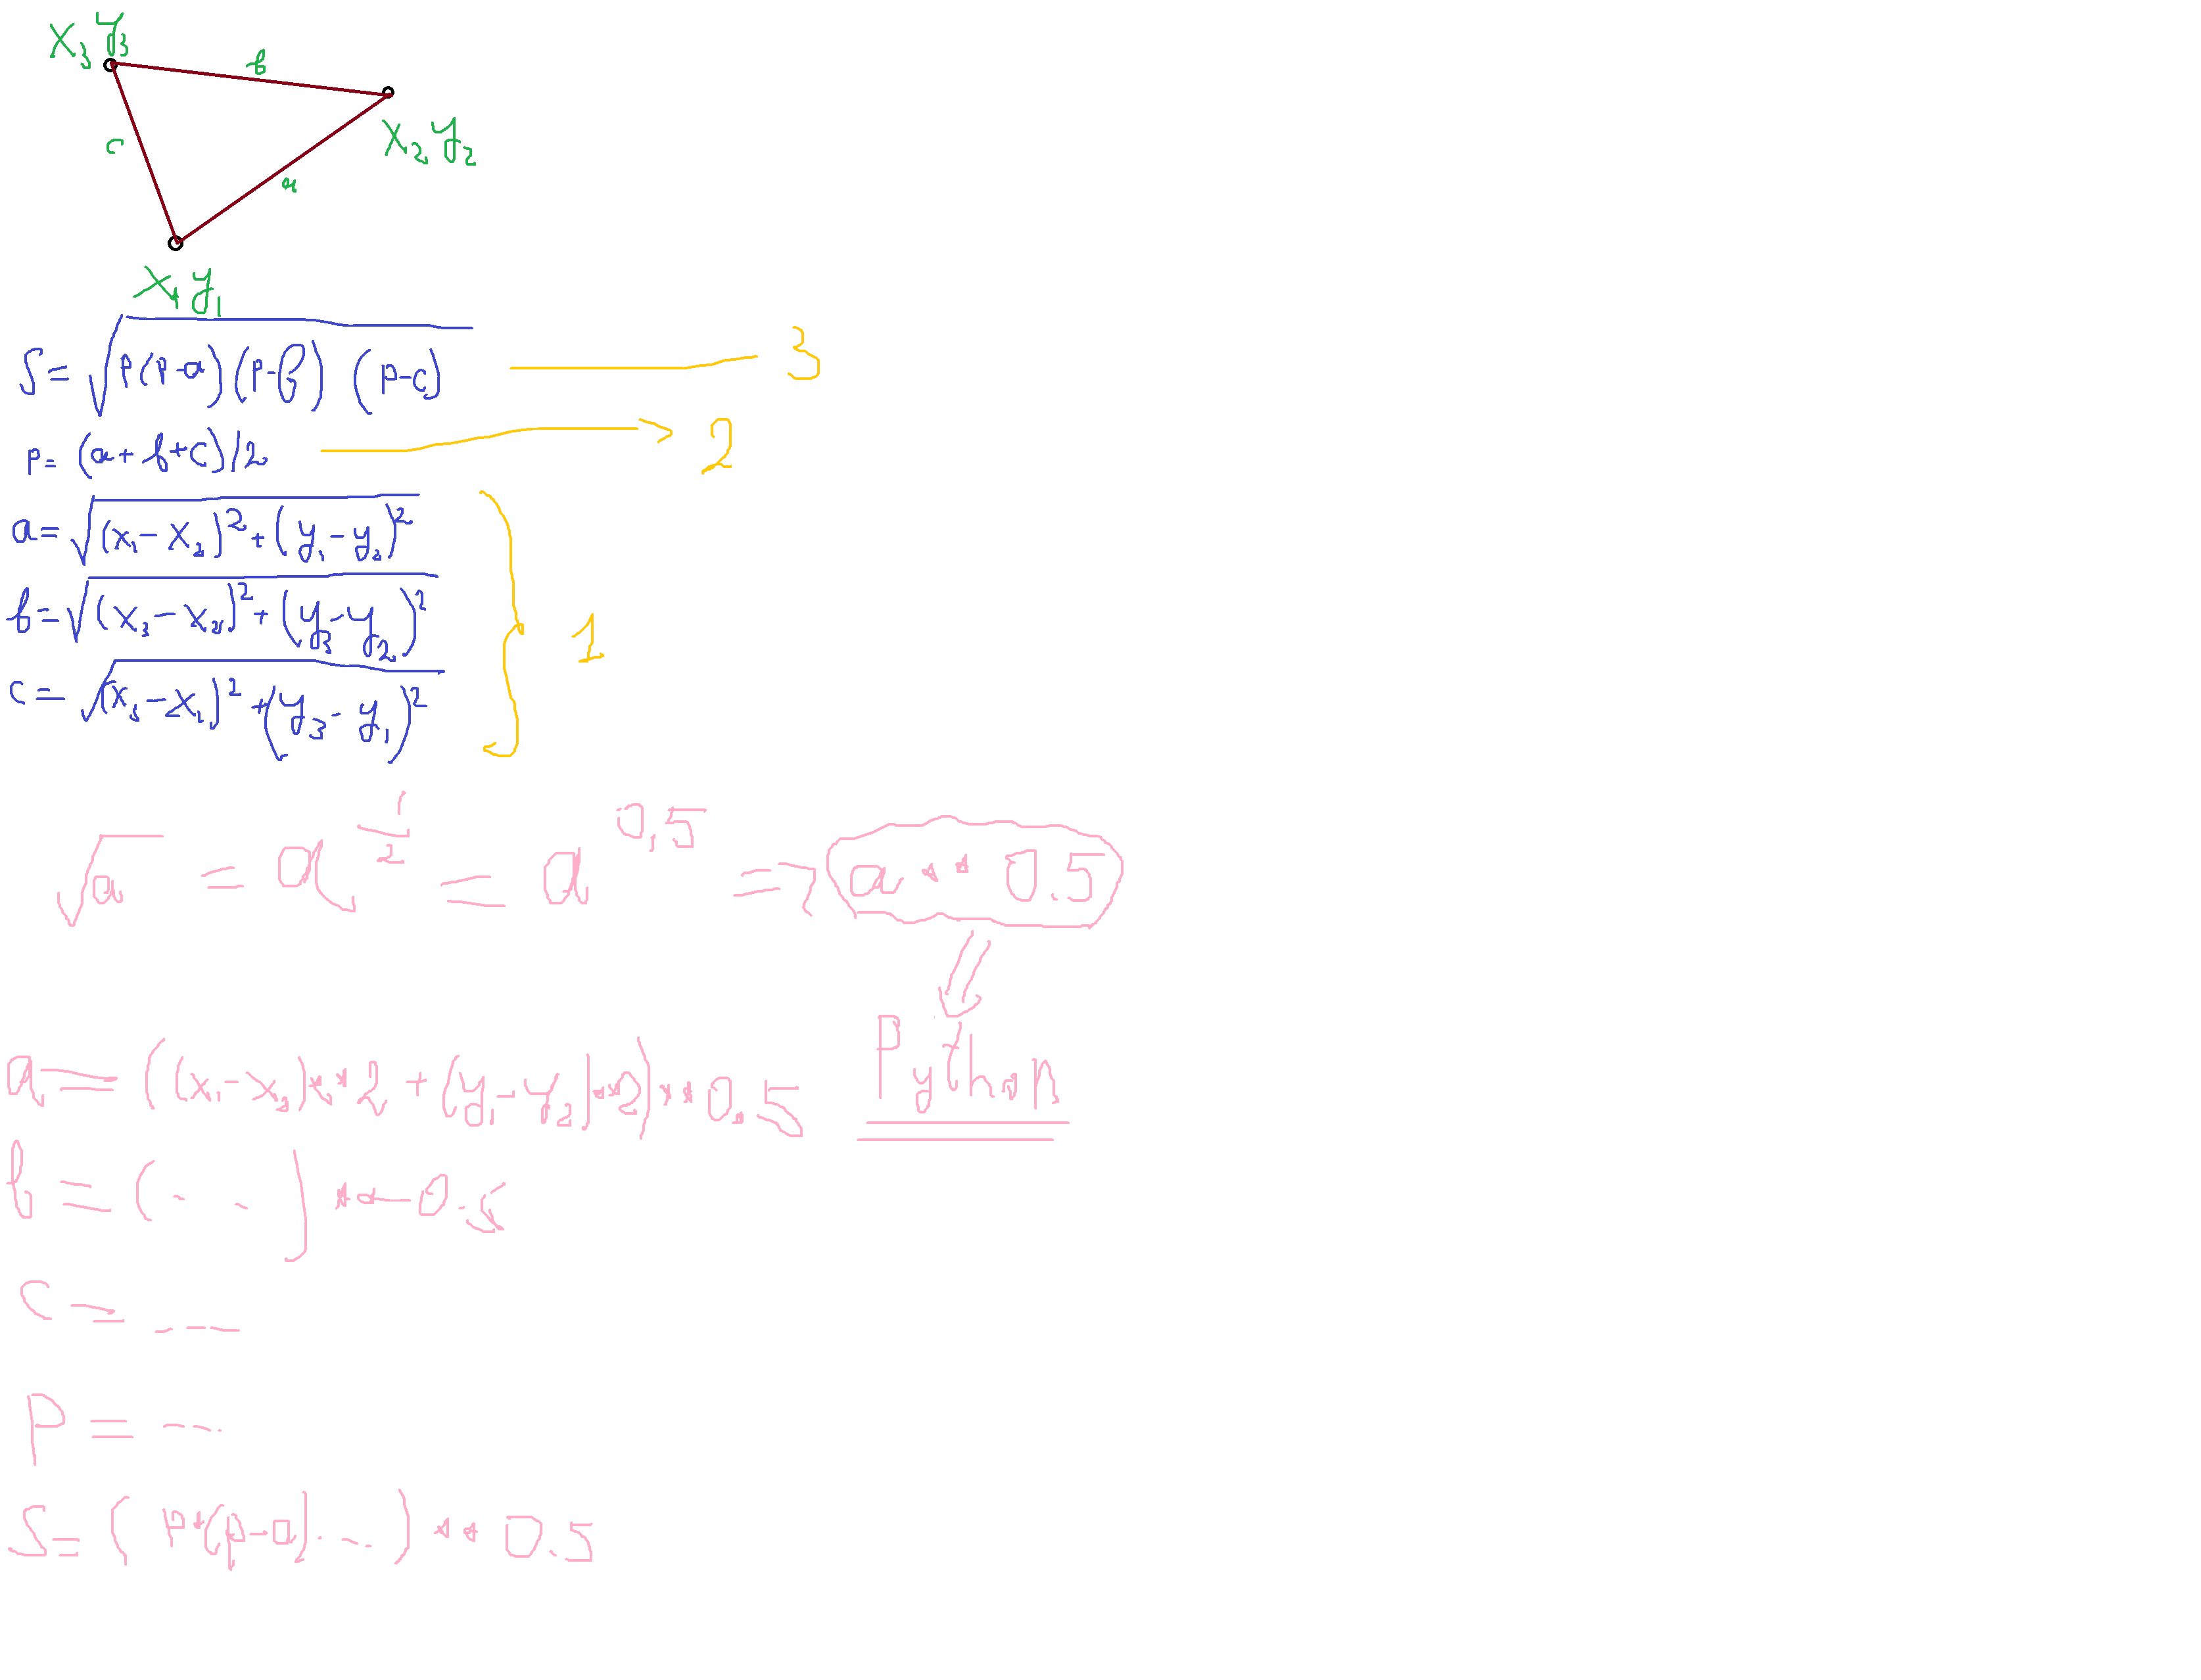 x₃ y₃
b
c
x₂ y₂
a
x₁ y₁
S = √(p(p-a)(p-b)(p-c)) 3
p = (a+b+c)/2 2
a = √((x₁-x₂)²+(y₁-y₂)²)
b = √((x₃-x₂)²+(y₃-y₂)²)
1
c = √((x₃-x₁)²+(y₃-y₁)²)
√a = a^(1/2) = a^0,5 => a**0.5
Python
a = ((x₁-x₂)**2+(y₁-y₂)**2)**0.5
b = (. .)**0.5
c = ----
P = ---
S = (p*(p-a)...)**0.5